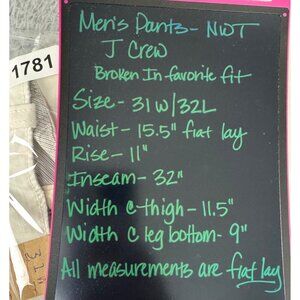 Men's Pants - NWT
J Crew
Broken In favorite fit
1781
Size - 31W/32L
Waist - 15.5" flat lay
Rise - 11"
Inseam - 32"
Width @ thigh - 11.5"
Width @ leg bottom - 9"
All measurements are flat lay